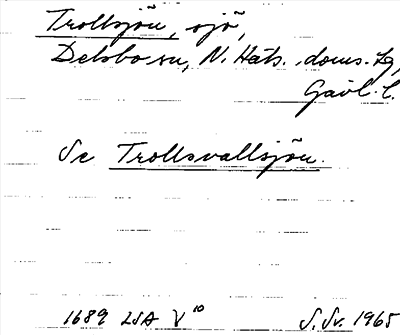 Trollsjön, sjö,
Delsbo sn, N. Häls. doms. lg,
Gävl. l.
Se Trollsvallsjön.
1689 LSA V 10 S. Sv. 1965